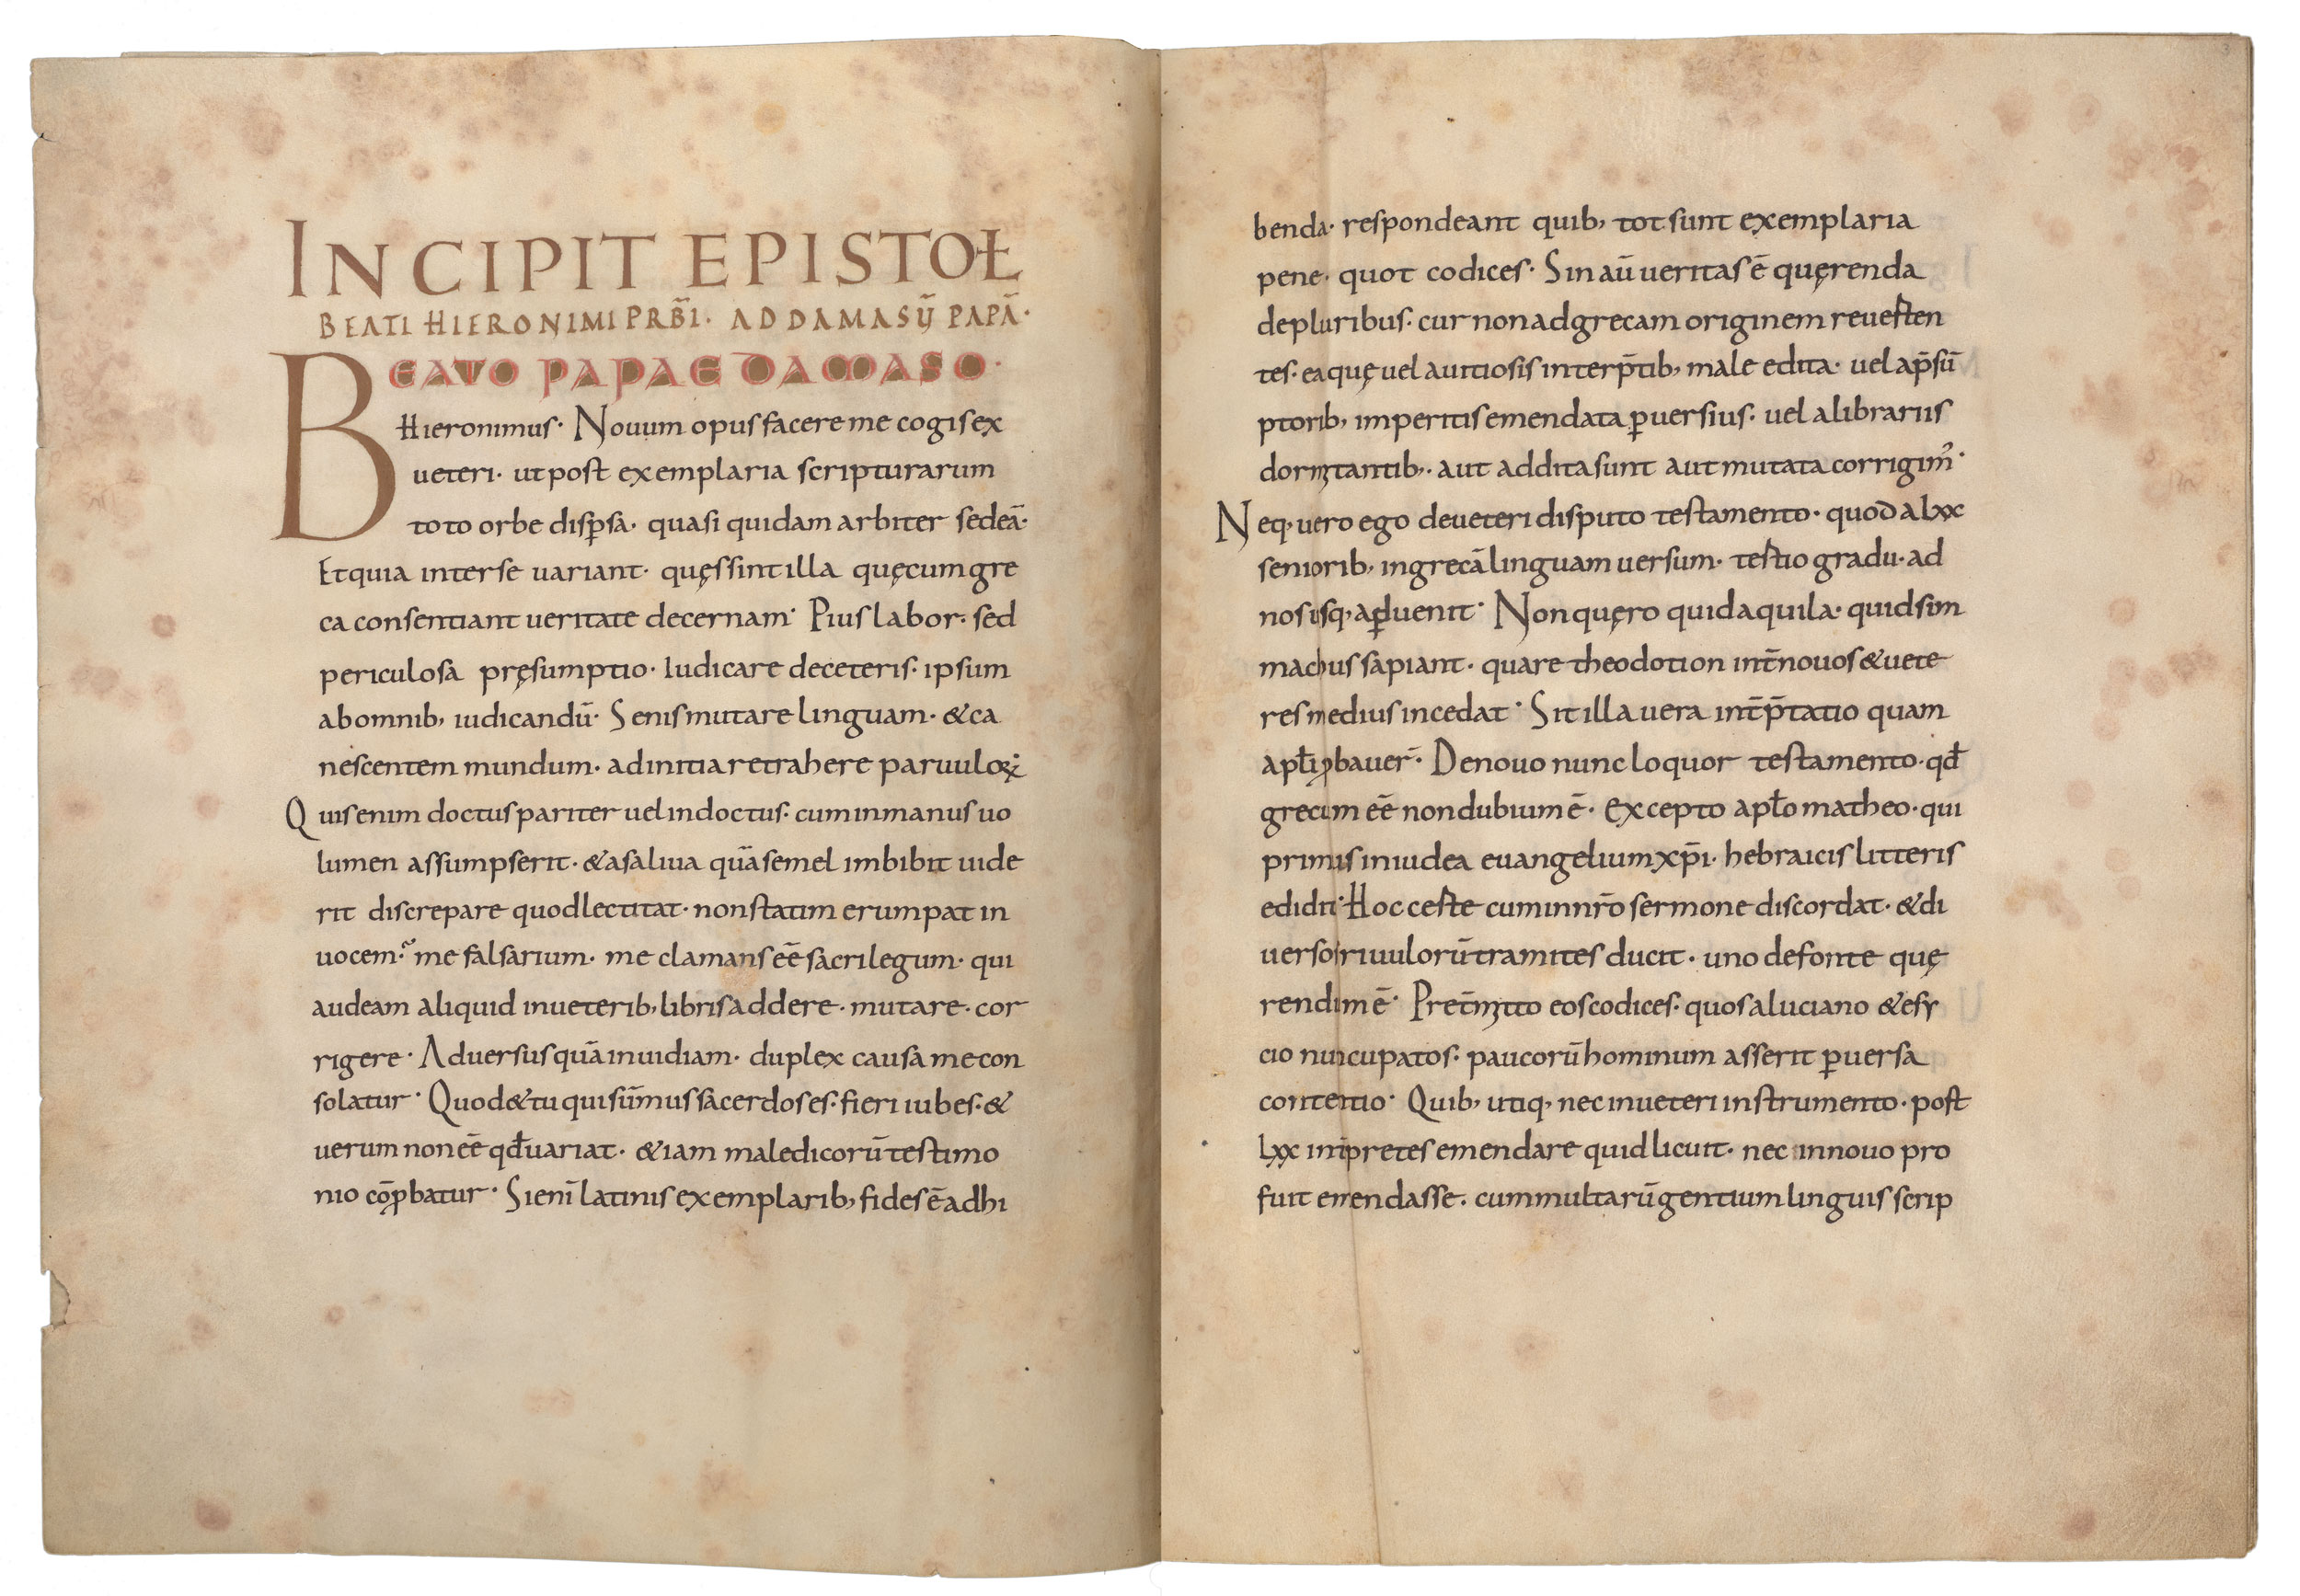 INCIPIT EPISTOƚ
BEATI HIERONIMI PRB̄I· AD DAMASŪ PAPĀ·
BEATO PAPAE DAMASO·
Hieronimus· Nouum opus facere me cogis ex
ueteri· ut post exemplaria scripturarum
toto orbe disꝑsa· quasi quidam arbiter sedeā·
Et quia inter se uariant· quęs sint illa quęcum gre
ca consentiant ueritate decernam· Pius labor· sed
periculosa pręsumptio· Iudicare de ceteris· ipsum
ab omnib; iudicandū· Senis mutare linguam· & ca
nescentem mundum· ad initia retrahere paruuloꝝ·
Quis enim doctus pariter uel indoctus· cum in manus uo
lumen assumpserit· & a saliua quā semel imbibit uide
rit discrepare quod lectitat· non statim erumpat in
uocem· me falsarium· me clamans eē sacrilegum· qui
audeam aliquid in ueterib; libris addere· mutare· cor
rigere· Aduersus quā inuidiam· duplex causa me con
solatur· Quod & tu qui sūmus sacerdos es· fieri iubes· &
uerum non eē qđ uariat· & iam maledicorū testimo
nio cōꝓbatur· Si enī latinis exemplarib; fides ē adhi
benda· respondeant quib; tot sunt exemplaria
pene· quot codices· Sin aū ueritas ē quęrenda
de pluribus· cur non ad grecam originem reuerten
tes· ea quę uel a uitiosis interp̄tib; male edita· uel a p̄sū
ptorib; imperitis emendata ꝑuersius· uel a librariis
dormitantib;· aut addita sunt aut mutata corrigim᾽·
Neq; uero ego de ueteri disputo testamento· quod a lxx
seniorib; in grecā linguam uersum· tertio gradu· ad
nos usq; ꝑuenit· Non quęro quid aquila· quid sim
machus sapiant· quare theodotion int̄ nouos & uete
res medius incedat· Sit illa uera int̄p̄tatio quam
apƚi ꝓbauer̄· De nouo nunc loquor testamento· qđ
grecum eē non dubium ē· excepto apƚo matheo· qui
primus in iudea euangelium xp̄i· hebraicis litteris
edidit· Hoc certe cum in nr̄o sermone discordat· & di
uersos riuulorū tramites ducit· uno de fonte quę
rendum ē· Pret̄mitto eos codices· quos a luciano & esy
cio nuncupatos· paucorū hominum asserit ꝑuersa
contentio· Quib; utiq; nec in ueteri instrumento· post
lxx int̄pretes emendare quid licuit· nec in nouo pro
fuit emendasse· cum multarū gentium linguis scrip